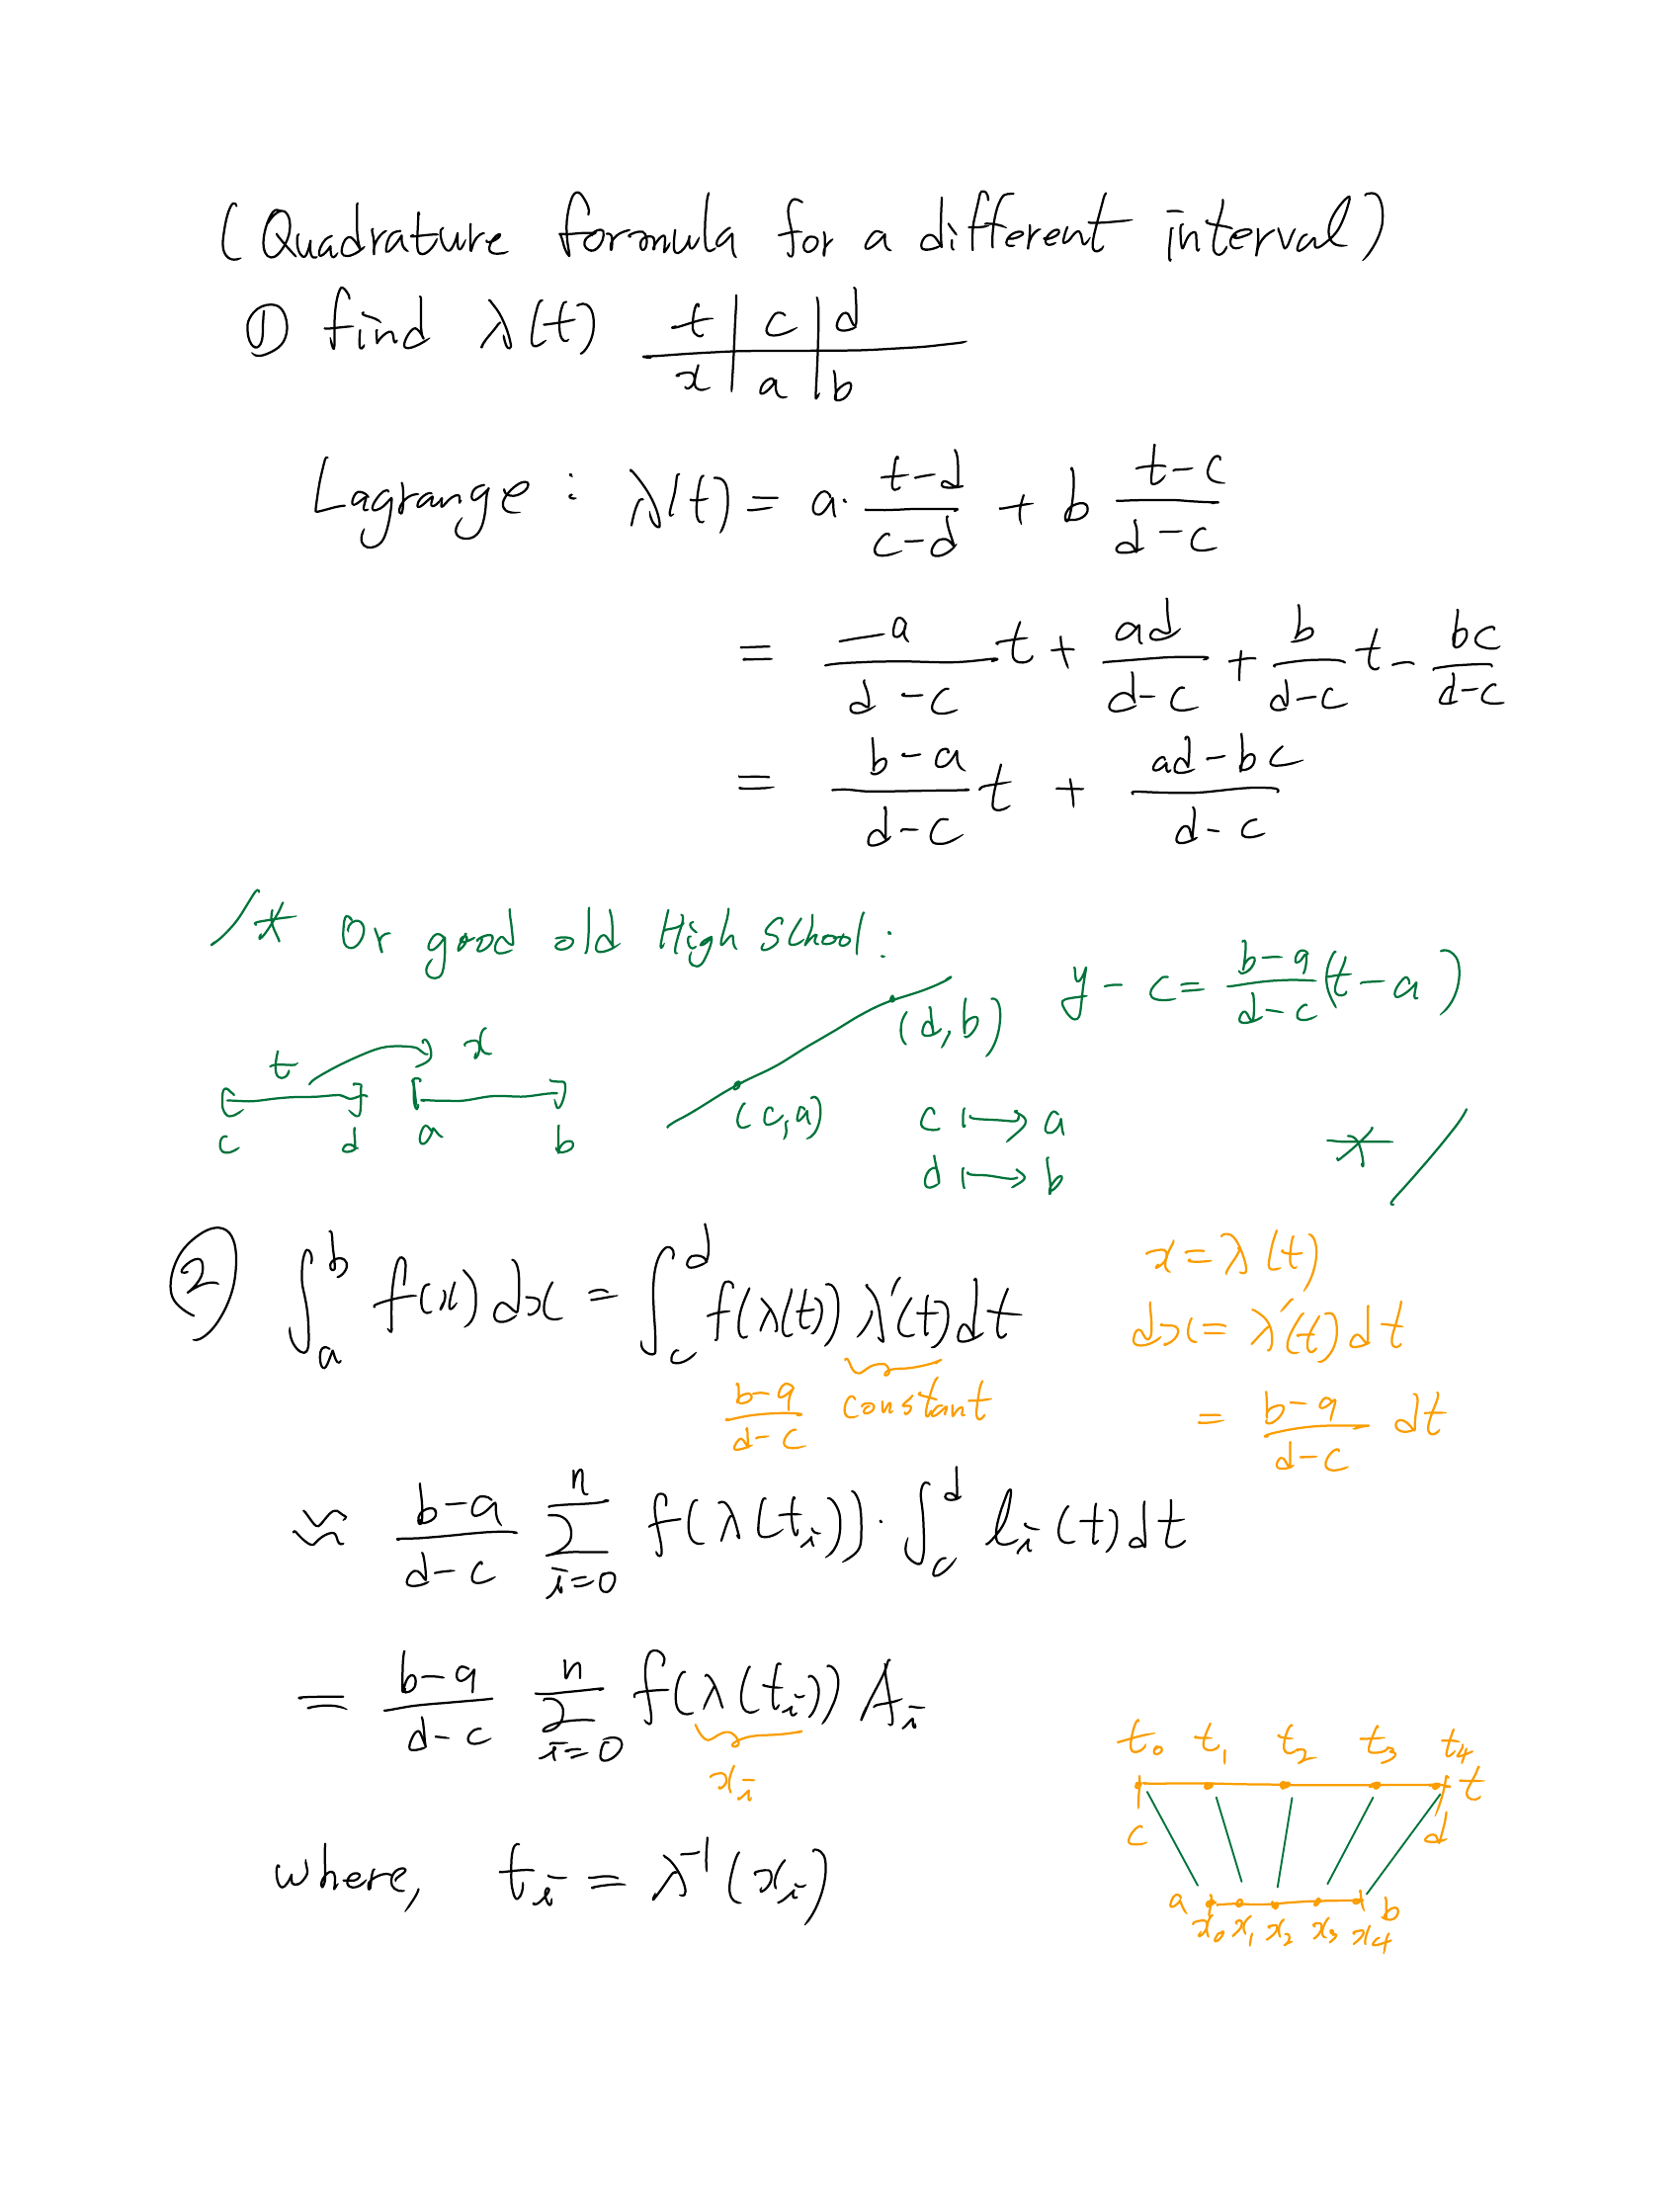 (Quadrature formula for a different interval)
① find λ(t) t | c | d
x | a | b
Lagrange : λ(t) = a · (t-d)/(c-d) + b (t-c)/(d-c)
= (-a)/(d-c) t + ad/(d-c) + b/(d-c) t - bc/(d-c)
= (b-a)/(d-c) t + (ad-bc)/(d-c)
/* Or good old High School :
y - c = (b-a)/(d-c) (t-a)
(d,b)
t x
(c,a)
c d a b
c ↦ a
d ↦ b
*/
② ∫_a^b f(x) dx = ∫_c^d f(λ(t)) λ'(t) dt
(b-a)/(d-c) constant
x = λ(t)
dx = λ'(t) dt
= (b-a)/(d-c) dt
≈ (b-a)/(d-c) Σ_{i=0}^n f(λ(t_i)) · ∫_c^d l_i(t) dt
= (b-a)/(d-c) Σ_{i=0}^n f(λ(t_i)) A_i
x_i
where, t_i = λ^{-1}(x_i)
t_0 t_1 t_2 t_3 t_4
t
c d
a b
x_0 x_1 x_2 x_3 x_4